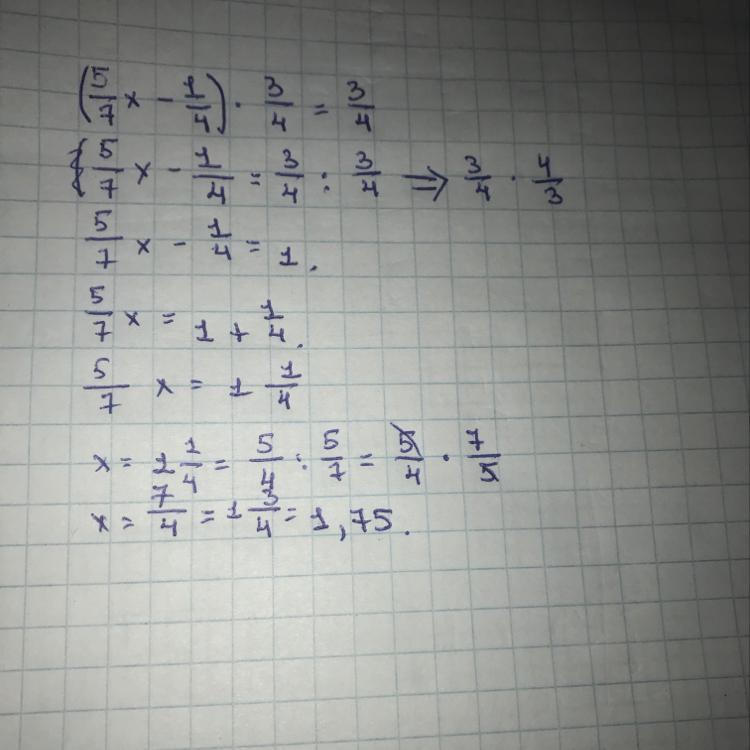 (5/7 x - 1/4) · 3/4 = 3/4
5/7 x - 1/4 = 3/4 : 3/4 ⇒ 3/4 · 4/3
5/7 x - 1/4 = 1.
5/7 x = 1 + 1/4.
5/7 x = 1 1/4
x = 1 1/4 = 5/4 : 5/7 = 5/4 · 7/5
x = 7/4 = 1 3/4 = 1,75.